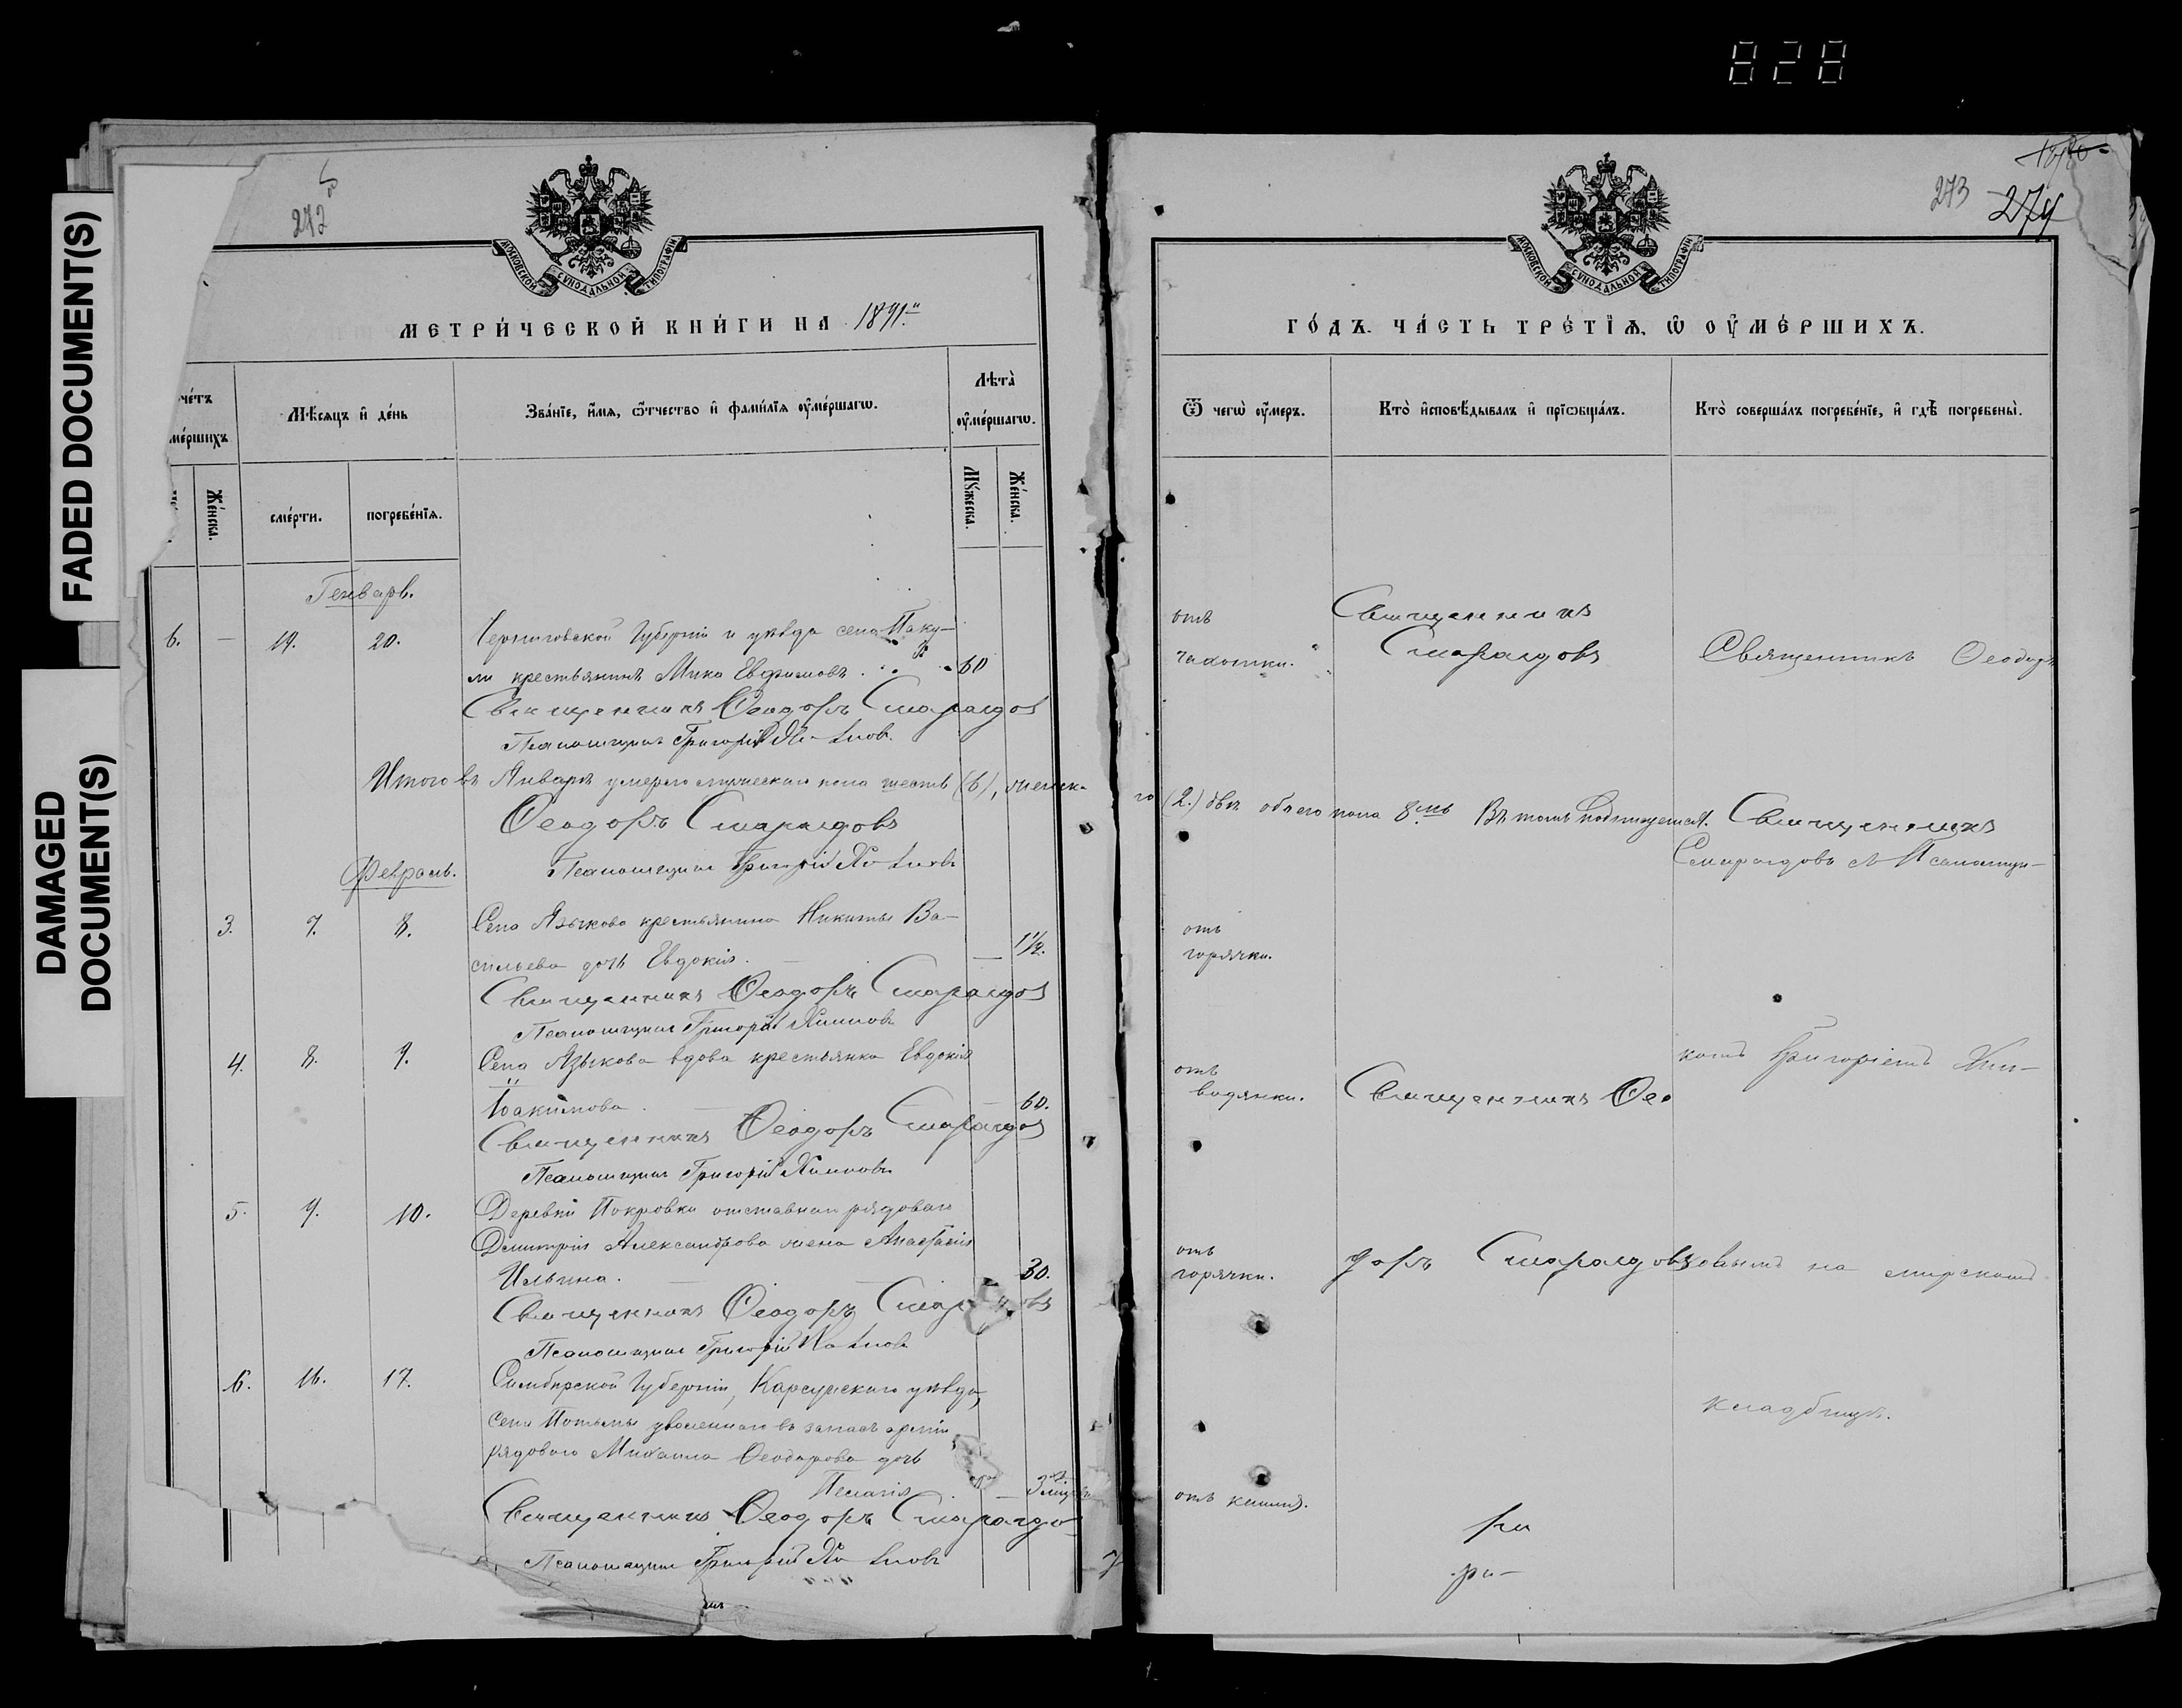 828
FADED DOCUMENT(S)
DAMAGED
DOCUMENT(S)
272
МОСКОВСКОЙ СѴНОДАЛЬНОЙ ТИПОГРАФІИ
МЕТРИ́ЧЕСКОЙ КНИ́ГИ НА 1891.
че́тъ
ме́ршихъ
Мѣ́сяцъ и҆ де́нь
Зва́нїе, и҆́мѧ, ѿте́чество и҆ фами́лїѧ ᲂу҆ме́ршагѡ.
Лѣта̀
ᲂу҆ме́ршагѡ.
Же́нска.
сме́рти.
погребе́нїѧ.
Мꙋ́жеска.
Же́нска.
Генварь.
6. — 19. 20. Черниговской Губерніи и уѣзда села Паку-
ли крестьянинъ Мика Евфимовъ . . . 60
Священникъ Ѳеодоръ Смарагдов
Псаломщикъ Григорій
Итого въ Январѣ умерло мужескаго пола шесть (6), женск-
Ѳеодоръ Смарагдовъ
Псаломщикъ Григорій
Февраль.
3. 7. 8. Села Языкова крестьянина Никиты Ва-
сильева дочь Евдокія. — 1½.
Священникъ Ѳеодоръ Смарагдов
Псаломщикъ Григорій
4. 8. 9. Села Языкова вдова крестьянка Евдокія
Іоакимова. 60.
Священникъ Ѳеодоръ Смарагдов
Псаломщикъ Григорій
5. 9. 10. Деревни Покровки отставнаго рядоваго
Димитрія Александрова жена Анастасія
Ильина. 30.
Священникъ Ѳеодоръ Смарагдовъ
Псаломщикъ Григорій
6. 16. 17. Симбирской Губерніи, Карсунскаго уѣзда,
села Потьмы уволеннаго въ запасъ арміи
рядоваго Михаила Ѳеодорова дочь
Пелагія
Священникъ Ѳеодоръ Смарагдо
Псаломщикъ Григорій
273 274
МОСКОВСКОЙ СѴНОДАЛЬНОЙ ТИПОГРАФІИ
ГО́ДЪ. ЧА́СТЬ ТРЕ́ТЇѦ, Ѡ҆ ᲂУ҆МЕ́РШИХЪ.
Ѿ чегѡ̀ ᲂу҆́меръ.
Кто̀ и҆сповѣ́дывалъ и҆ прїѡбща́лъ.
Кто̀ соверша́лъ погребе́нїе, и҆ гдѣ̀ погребены̀.
отъ
чахотки.
Священникъ
Смарагдовъ
Священникъ Ѳеодоръ
го (2.) двѣ обоего пола 8мь Въ томъ подпишемся. Священникъ
Смарагдовъ съ Псаломщи-
отъ
горячки.
комъ Григоріемъ
отъ
водянки.
Священникъ Ѳео
отъ
горячки.
доръ Смарагдовъ
на мирскомъ
кладбищѣ.
отъ кашля.